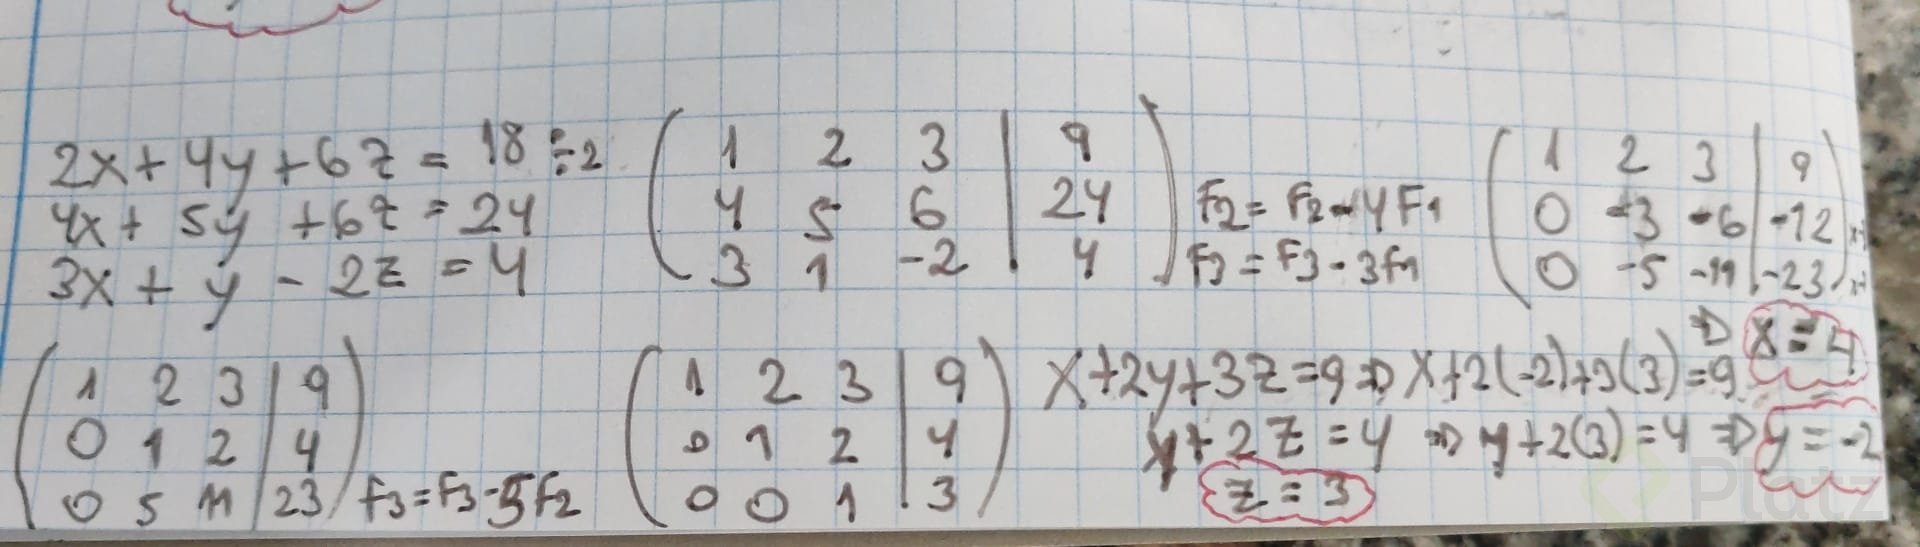 2x + 4y + 6z = 18 ÷2
4x + 5y + 6z = 24
3x + y - 2z = 4
1 2 3 | 9
4 5 6 | 24
3 1 -2 | 4
F2 = F2 - 4F1
F3 = F3 - 3F1
1 2 3 | 9
0 -3 -6 | -12
0 -5 -11 | -23
1 2 3 | 9
0 1 2 | 4
0 5 11 | 23
F3 = F3 - 5F2
1 2 3 | 9
0 1 2 | 4
0 0 1 | 3
x + 2y + 3z = 9 ⇒ x + 2(-2) + 3(3) = 9 ⇒ x = 4
y + 2z = 4 ⇒ y + 2(3) = 4 ⇒ y = -2
z = 3
Platz